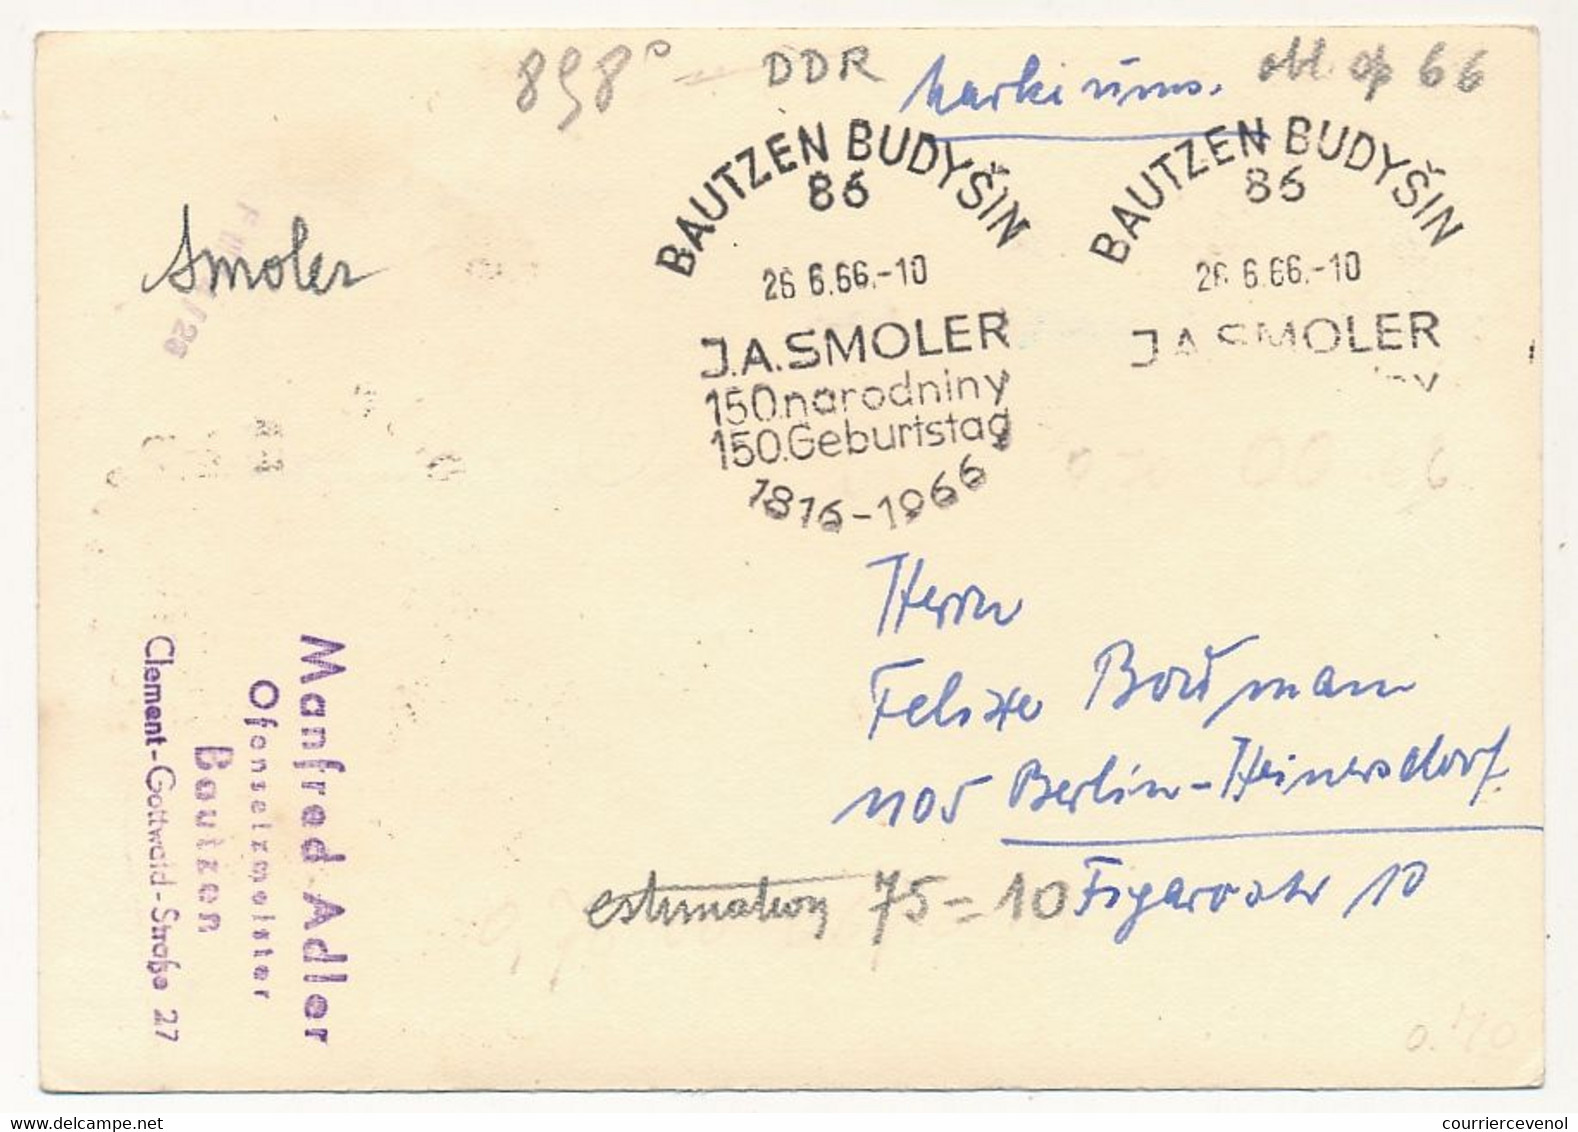 DDR
obl. op 66
BAUTZEN BUDYŠIN
86
26.6.66.-10
J.A. SMOLER
150. narodniny
150. Geburtstag
1816-1966
BAUTZEN BUDYŠIN
86
26.6.66.-10
J.A. SMOLER
Smoler
Herrn
Felixe
1105 Berlin-Heinersdorf.
Figarostr 10
estimation 75 = 10
Manfred Adler
Ofensetzmeister
Bautzen
Clement-Gottwald-Straße 27
courriercevenol
delcampe.net